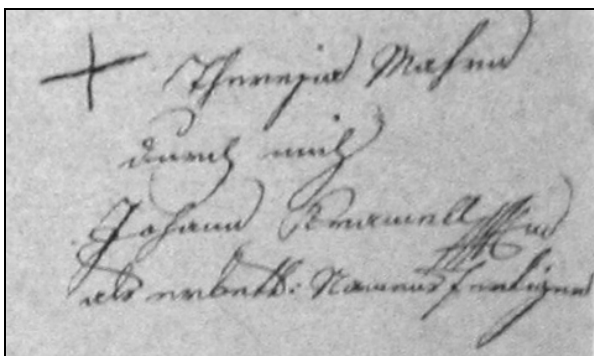 + Theresia Mahrin
durch mich
Johann Kramell
als erbett: Namensfertiger